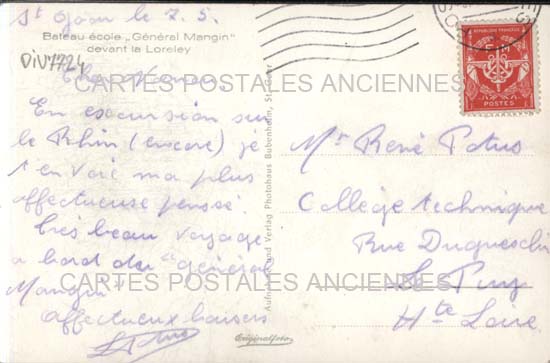 St Goar le 7.5.
Bateau école „Général Mangin"
devant la Loreley
DIV7724
Cher
En excursion sur
le Rhin (encore) je
t'envoie ma plus
affectueuse pensée.
Très beau voyage
a bord du "général
Mangin"
affectueux baisers
Mr René
Collège technique
Rue Duguesclin
Le Puy
Hte Loire
Aufnahme und Verlag Photohaus Bubenheim, St. Goar
Originalfoto
REPUBLIQUE FRANÇAISE
F M
POSTES
CARTES POSTALES ANCIENNES
CARTES POSTALES ANCIENNES